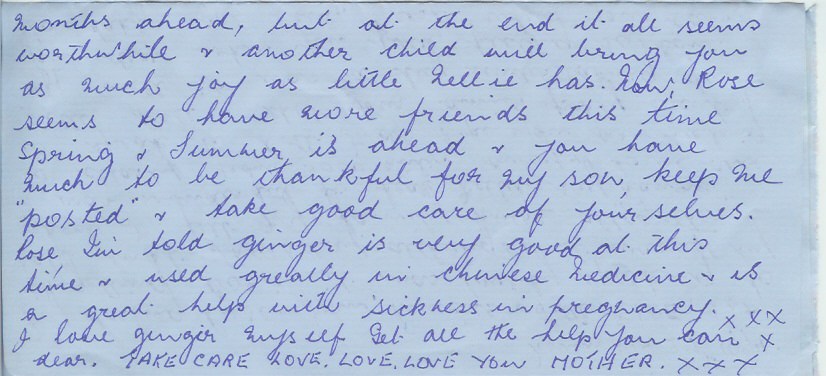 months ahead, but at the end it all seems
worthwhile & another child will bring you
as much joy as little Nellie has. Now, Rose
seems to have more friends this time
Spring & Summer is ahead & you have
much to be thankful for my son, keep me
"posted" & take good care of yourselves.
Rose I'm told ginger is very good at this
time & used greatly in chinese medicine & is
a great help with sickness in pregnancy. x x x
I love ginger myself Get all the help you can x
dear. TAKE CARE LOVE. LOVE. LOVE YOU MOTHER. x x x